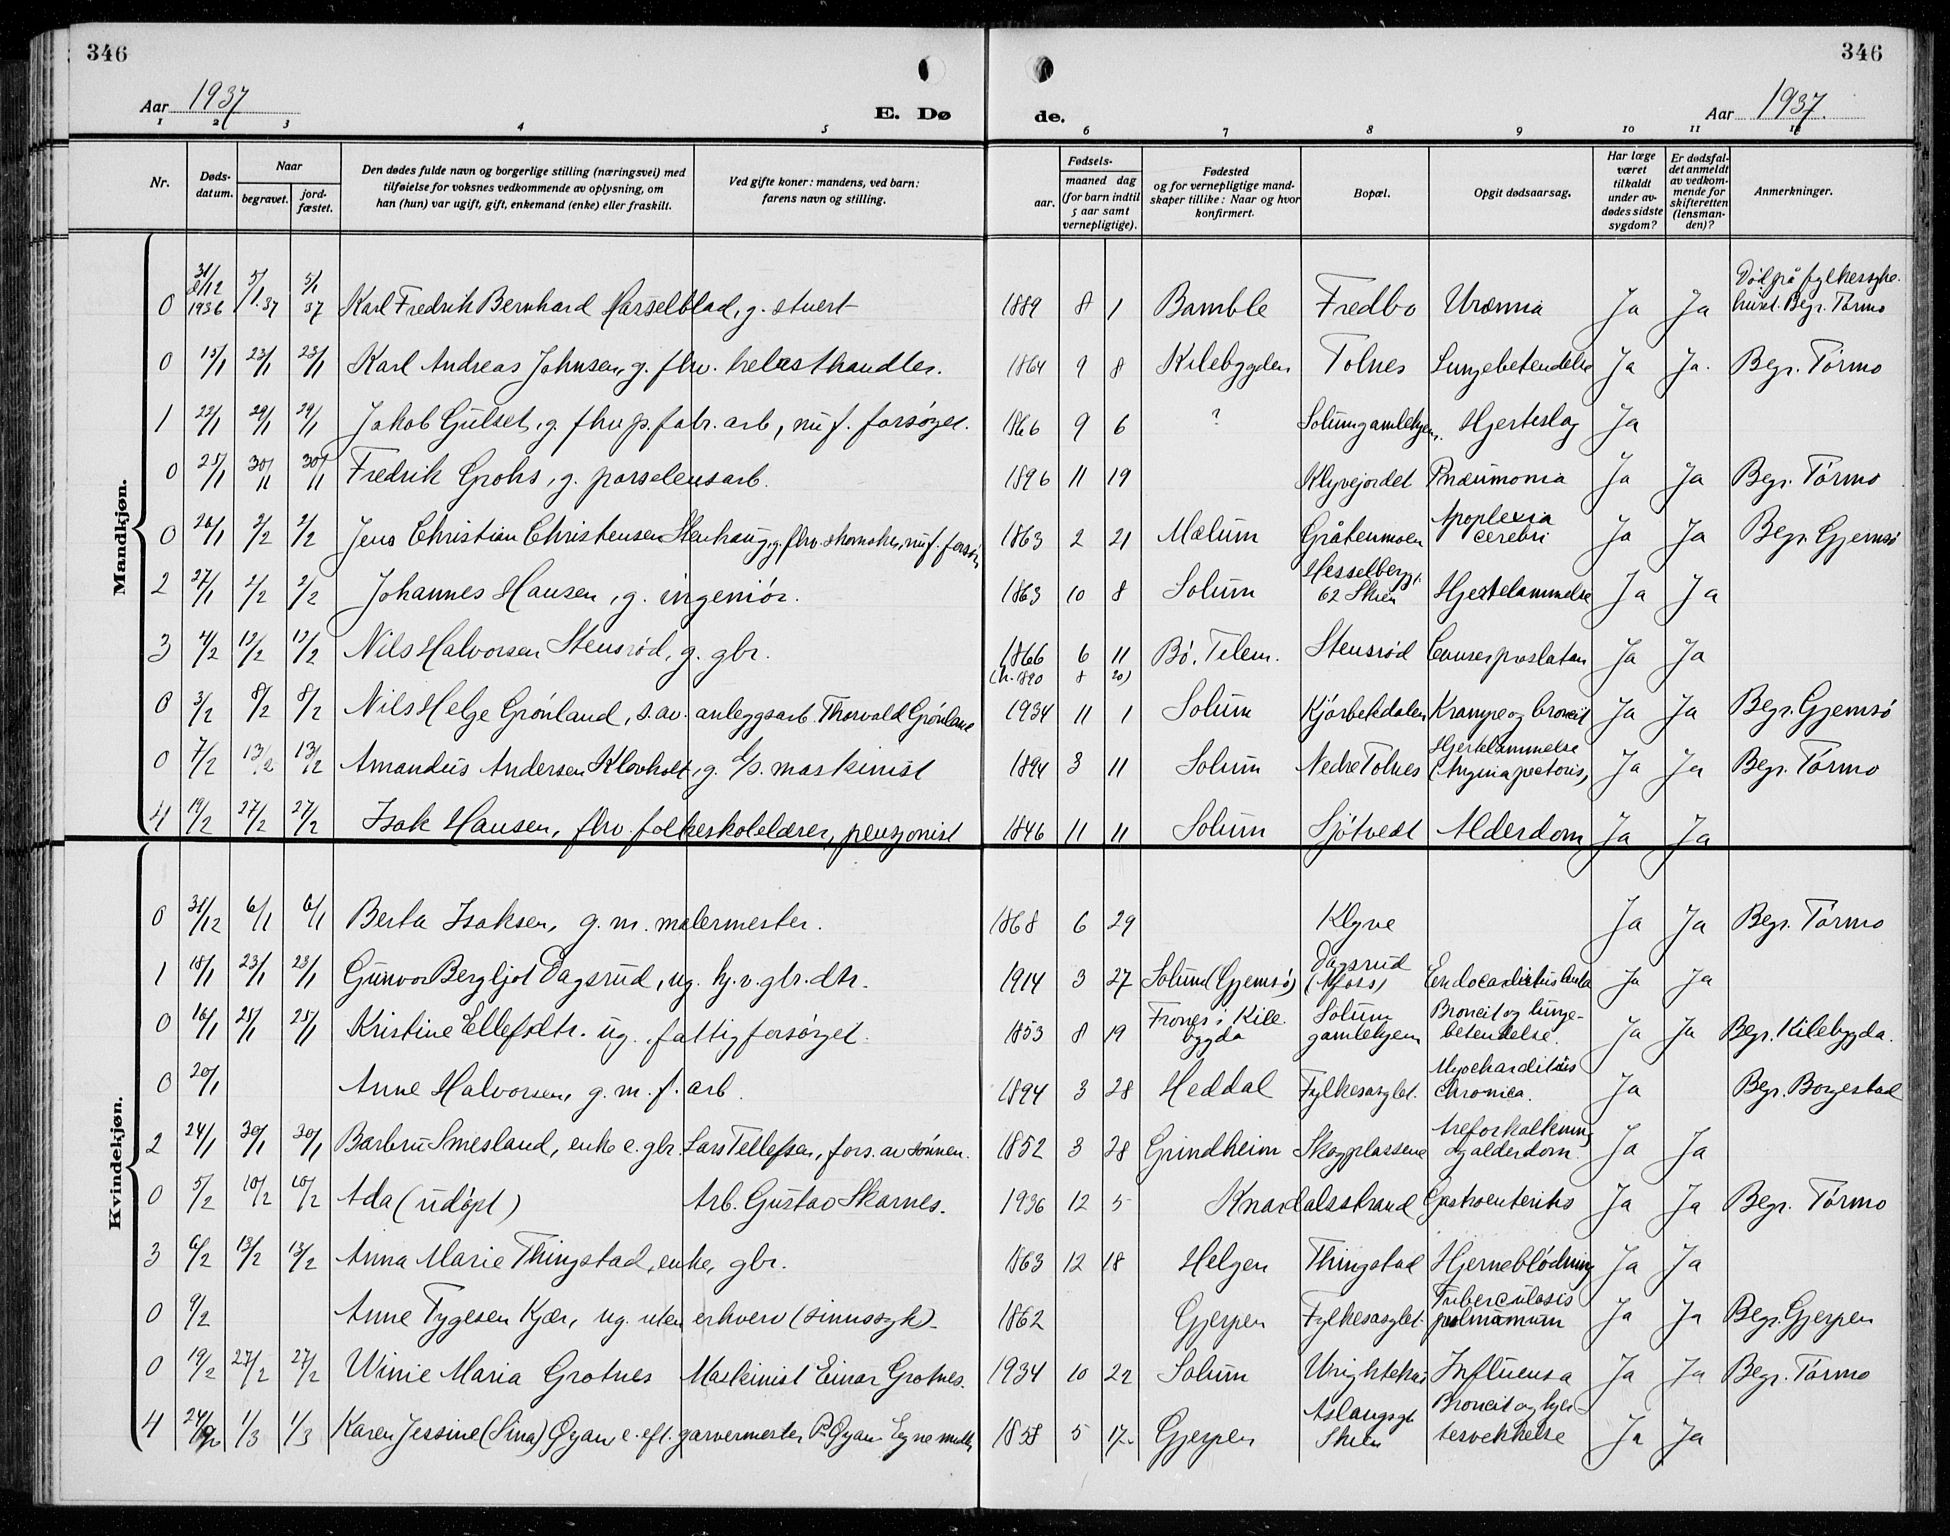 346
346
Aar 1937
E. Dø
de.
Aar 1937.
1 2 3 4 5 6 7 8 9 10 11 12
Nr.
Døds-datum.
Naar
begravet.
jord-fæstet.
Den dødes fulde navn og borgerlige stilling (næringsvei) med tilføielse for voksnes vedkommende av oplysning, om han (hun) var ugift, gift, enkemand (enke) eller fraskilt.
Ved gifte koner: mandens, ved barn: farens navn og stilling.
Fødsels-
aar.
maaned dag (for barn indtil 5 aar samt vernepligtige).
Fødested og for vernepligtige mand-skaper tillike: Naar og hvor konfirmert.
Bopæl.
Opgit dødsaarsag.
Har læge været tilkaldt under av-dødes sidste sygdom?
Er dødsfal-det anmeldt av vedkom-mende for skifteretten (lensman-den)?
Anmerkninger.
Mandkjøn.
0 31/12 1936 5/1.37 5/1 37 Karl Fredrik Bernhard Harselblad, g. stuert 1889 8 1 Bamble Fredbo Urænia Ja Ja Død på fylkessyke-huset. Begr. Tørmo
0 15/1 23/1 23/1 Karl Andreas Johnsen, g. fhv. helasthandler. 1864 9 8 Kilebygden Tolnes Lungebetendelse Ja Ja. Begr. Tørmo
1 22/1 29/1 29/1 Jakob Gulset, g. fhv. p. fabr. arb, nu f. forsørget. 1866 9 6 ? Solumgamlehjem. Hjerteslag Ja
0 25/1 30/1 30/1 Fredrik Grohs, g. porselensarb. 1896 11 19 Klyvejordet Pneumonia Ja Ja Begr. Tørmo
0 26/1 2/2 2/2 Jens Christian Christensen Stenhaug, g. fhv. skomaker, nu f. forsør 1863 2 21 Mælum Gråtenmoen Apoplexia cerebri Ja Ja Begr. Gjemsø
2 27/1 2/2 2/2 Johannes Hansen, g. ingeniør. 1863 10 8 Solum Hesselbergg. 62 Skien Hjertelammelse Ja Ja
3 4/2 12/2 12/2 Nils Halvorsen Stensrød, g. gbr. 1866 6 11 (h. 1890 8 20) Bø, Telem. Stensrød Cancer prostatan Ja Ja
0 3/2 8/2 8/2 Nils Helge Grønland, s. av. anleggsarb. Thorvald Grønland 1934 11 1 Solum Kjørbekdalen Krampe og broncit Ja Ja Begr. Gjemsø
0 7/2 13/2 13/2 Amandus Andersen Klovholt, g. E/S. maskinist 1894 3 11 Solum Nedre Tolnes Hjertelammelse (Angina pectoris) Ja Ja Begr. Tørmo
4 19/2 27/2 27/2 Isak Hansen, fhv. folkeskolelærer, pensjonist 1846 11 11 Solum Sjøtvedt Alderdom Ja Ja
Kvindekjøn.
0 31/12 6/1 6/1 Berta Isaksen, g. m. malermester. 1868 6 29 Klyve Ja Ja Begr. Tørmo
1 18/1 23/1 23/1 Gunvor Bergljot Dagsrud, ug. hj. v. gbr. dtr. 1914 3 27 Solum (Gjemsø) Dagsrud (Afoss) Endocarditus lenta Ja Ja
0 16/1 25/1 25/1 Kristine Ellefsdtr. ug. fattigforsørget. 1853 8 19 Frones i Kile bygda Solum gamlehjem Broncit og lunge-betendelse. Ja Ja Begr. Kilebygda.
0 20/1 Anne Halvorsen, g. m. f. arb. 1894 3 28 Heddal Fylkesasylet. Myocharditis chronica. Ja Begr. Borgestad
2 24/1 30/1 30/1 Barbru Smesland, enke e. gbr. Lars Tellefsen, fors. av sønnen. 1852 3 28 Grindheim Skogplassene Areforkalkning og alderdom. Ja Ja
0 5/2 10/2 10/2 Ada (udøpt) Arb. Gustav Skarnes. 1936 12 5 Knardalsstrand Gastroenteritis Ja Ja Begr. Tørmo
3 6/2 13/2 13/2 Anna Marie Thingstad, enke, gbr. 1863 12 18 Helgen Thingstad Hjerneblødning Ja Ja
0 9/2 Anne Tygesen Kjær, ug. uten erhverv (sinnssyk). 1862 Gjerpen Fylkesasylet. Tuberculosis pulmumum Ja Ja Begr. Gjerpen
0 19/2 27/2 27/2 Winie Maria Grotnes Maskinist Einar Grotnes. 1934 10 22 Solum Influensa Ja Ja Begr. Tørmo
4 24/2 1/3 1/3 Karen Jessine (Sina) Gyan, e. eft. garvermester P. Gyan. 1858 5 17. Gjerpen Aslaugsgt. Skien Broncit og hjer tesvekkelse Ja Ja